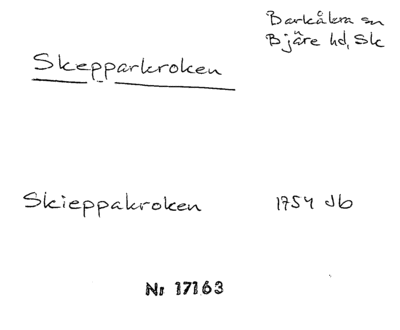 Barkåkra sn
Bjäre hd, Sk
Skepparkroken
Skieppakroken 1754 Jb
Nr 17163